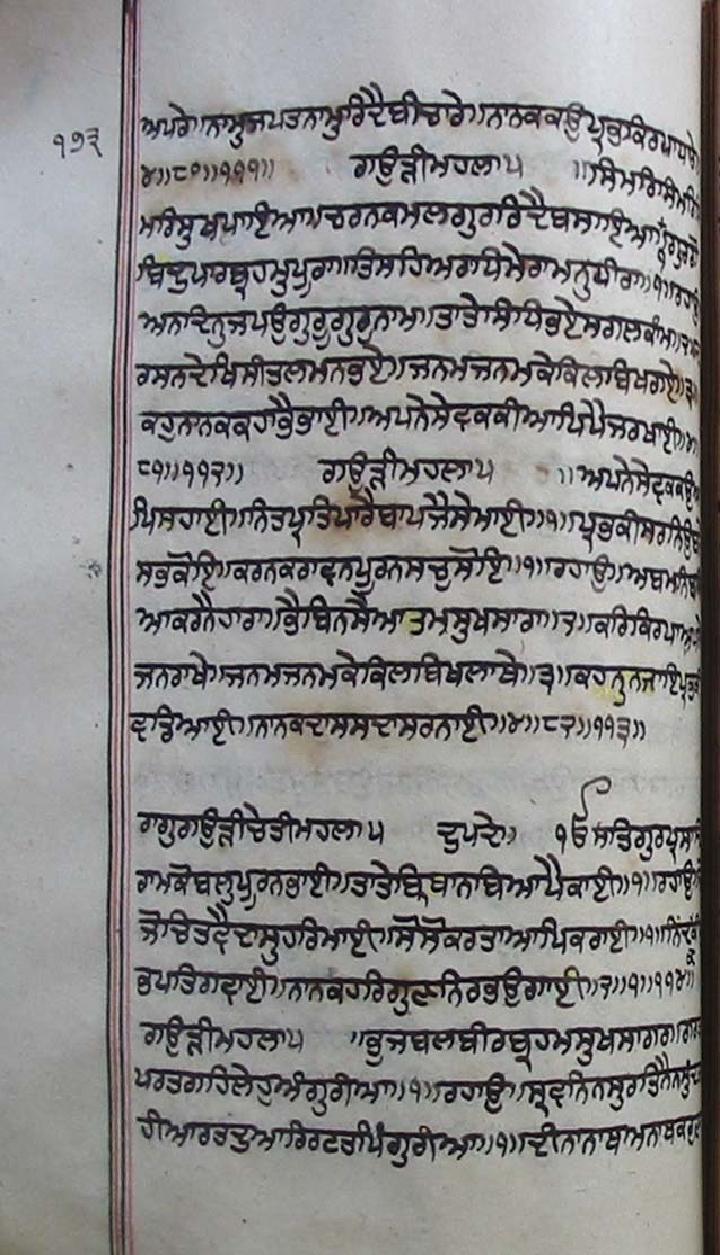 ੧੭੩
ਅਪਰੇ॥ਨਾਮੁਜਪਤਨਾਮੁਰਿਦੈਬੀਚਾਰੇ॥ਨਾਨਕਕਉਪ੍ਰਭਕਿਰਪਾਧਾਰੇ
੪॥੮੦॥੧੧੧॥ ਗਉੜੀਮਹਲਾ੫ ॥ਸਿਮਰਿਸਿਮਰਿ
ਮਰਿਸੁਖਪਾਇਆ॥ਚਰਨਕਮਲਗੁਰਰਿਦੈਬਸਾਇਆ॥੧॥ਗੁਰਗੋ
ਬਿਦੁਪਾਰਬ੍ਰਹਮੁਪੂਰਾ॥ਤਿਸਹਿਅਰਾਧਿਮੇਰਾਮਨੁਧੀਰਾ॥੧॥ਰਹਾਉ
ਅਨਦਿਨੁਜਪਉਗੁਰੂਗੁਰਨਾਮ॥ਤਾਤੇਸਿਧਿਭਏਸਗਲਕਾਂਮ॥੨॥ਦ
ਰਸਨਦੇਖਿਸੀਤਲਮਨਭਏ॥ਜਨਮਜਨਮਕੇਕਿਲਬਿਖਗਏ॥੩॥
ਕਹੁਨਾਨਕਕਹਾਭੈਭਾਈ॥ਅਪਨੇਸੇਵਕਕੀਆਪਿਪੈਜਰਖਾਈ॥੪॥
੮੧॥੧੧੨॥ ਗਉੜੀਮਹਲਾ੫ ॥ਅਪਨੇਸੇਵਕਕਉਆ
ਪਿਸਹਾਈ॥ਨਿਤਪ੍ਰਤਿਪਾਰੈਬਾਪਜੈਸੇਮਾਈ॥੧॥ਪ੍ਰਭਕੀਸਰਨਿਉਬਰੈ
ਸਭਕੋਇ॥ਕਰਨਕਰਾਵਨਪੂਰਨਸਚੁਸੋਇ॥੧॥ਰਹਾਉ॥ਅਬਮਨਿਬਸਿ
ਆਕਰਨੈਹਾਰਾ॥ਭੈਬਿਨਸੇਆਤਮਸੁਖਸਾਰਾ॥੨॥ਕਰਿਕਿਰਪਾਅਪਨੇ
ਜਨਰਾਖੇ॥ਜਨਮਜਨਮਕੇਕਿਲਬਿਖਲਾਥੇ॥੩॥ਕਹਨੁਨਜਾਇਪ੍ਰਭਕੀ
ਵਡਿਆਈ॥ਨਾਨਕਦਾਸਸਦਾਸਰਨਾਈ॥੪॥੮੨॥੧੧੩॥
ਰਾਗੁਗਉੜੀਚੇਤੀਮਹਲਾ੫ ਦੁਪਦੇ॥ ੴਸਤਿਗੁਰਪ੍ਰਸਾਦਿ
ਰਾਮਕੋਬਲੁਪੂਰਨਭਾਈ॥ਤਾਤੇਬ੍ਰਿਥਾਨਬਿਆਪੈਕਾਈ॥੧॥ਰਹਾਉ
ਜੋਚਿਤਵੈਦਾਸੁਹਰਿਮਾਈ॥ਸੋਸੋਕਰਤਾਆਪਿਕਰਾਈ॥੧॥ਨਿੰਦਕਕੀ
ਭਪਤਿਗਵਾਈ॥ਨਾਨਕਹਰਿਗੁਣਨਿਰਭਉਗਾਈ॥੨॥੧॥੧੧੪॥
ਗਉੜੀਮਹਲਾ੫ ॥ਭੁਜਬਲਬੀਰਬ੍ਰਹਮਸੁਖਸਾਗਰ॥ਗਰਤ
ਪਰਤਗਹਿਲੇਹੁਅੰਗੁਰੀਆ॥੧॥ਰਹਾਉ॥ਸ੍ਰਵਨਿਨਸੁਰਤਿਨੈਨਸੁੰਦਰ
ਹੀਆਰਤਦੁਆਰਿਰਟਤਪਿੰਗੁਰੀਆ॥੧॥ਦੀਨਾਨਾਥਅਨਾਥਕਰੁਣਾ